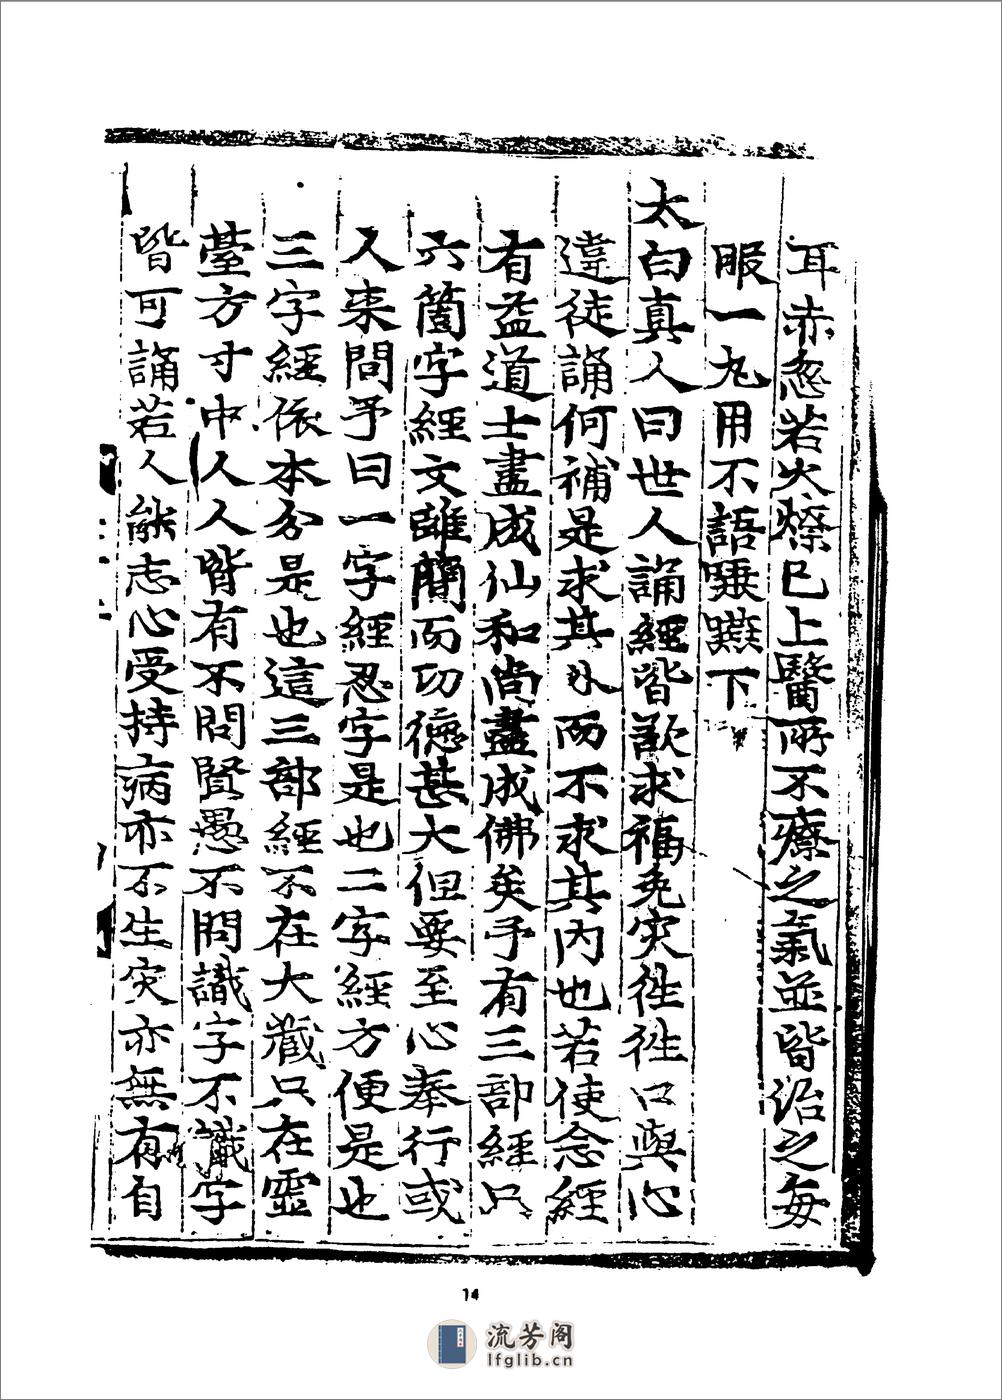 耳赤忽若火燎已上醫所不療之氣並皆治之每
服一丸用不語唾嚥下
太白真人曰世人誦經皆欲求福免灾徃徃口與心
違徒誦何補是求其外而不求其内也若使念經
有益道士盡成仙和尚盡成佛矣予有三部經只
六箇字經文雖簡而功德甚大但要至心奉行或
人来問予曰一字經忍字是也二字經方便是也
三字經依本分是也這三部經不在大藏只在靈
䑓方寸中人人皆有不問賢愚不問識字不識字
皆可誦若人能志心受持病亦不生灾亦無有自
14
流芳阁
lfglib.cn